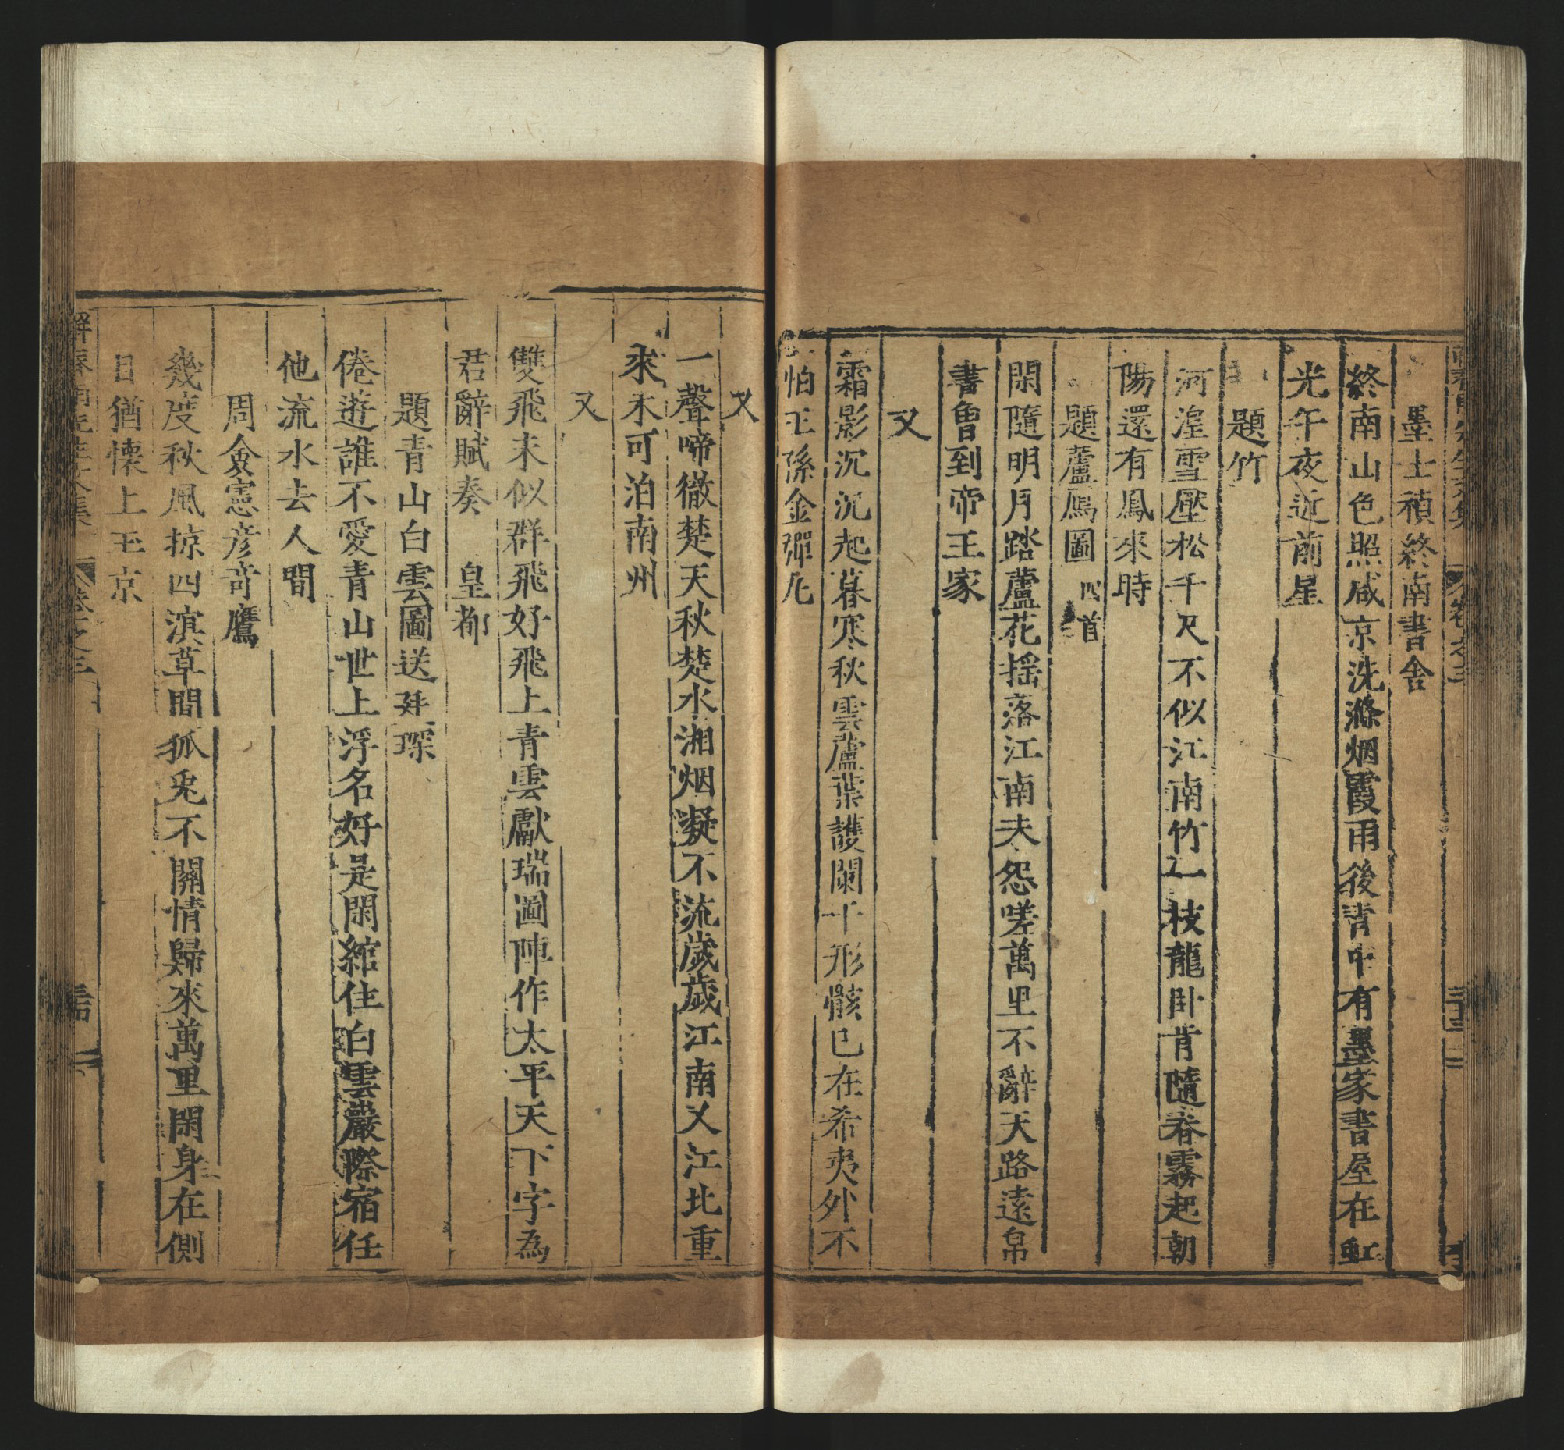 墨士禎終南書舍
終南山色照咸京洗滌烟霞雨後青中有墨家書屋在虹
光午夜近前星
題竹
河湟雪壓松千尺不似江南竹一枝龍卧肯隨春霧起朝
陽還有鳳來時
題蘆鴈圖 四首
閑隨明月踏蘆花揺落江南夫怨嗟萬里不辭天路遠帛
書曾到帝王家
又
霜影沉沉起暮寒秋雲蘆葉護闌干形骸已在希夷外不
怕王孫金彈丸
又
一聲啼徹楚天秋楚水湘烟凝不流歲歲江南又江北重
來未可泊南州
又
雙飛未似群飛好飛上青雲獻瑞圖陣作太平天下字為
君辭賦奏 皇都
題青山白雲圖送 琛
倦遊誰不愛青山世上浮名好是閑綰住白雲巖際宿任
他流水去人間
周僉憲彦奇鷹
幾度秋風掠四溟草間狐兎不關情歸來萬里閑身在側
目猶懷上玉京
解 先生文集 卷之三 三四